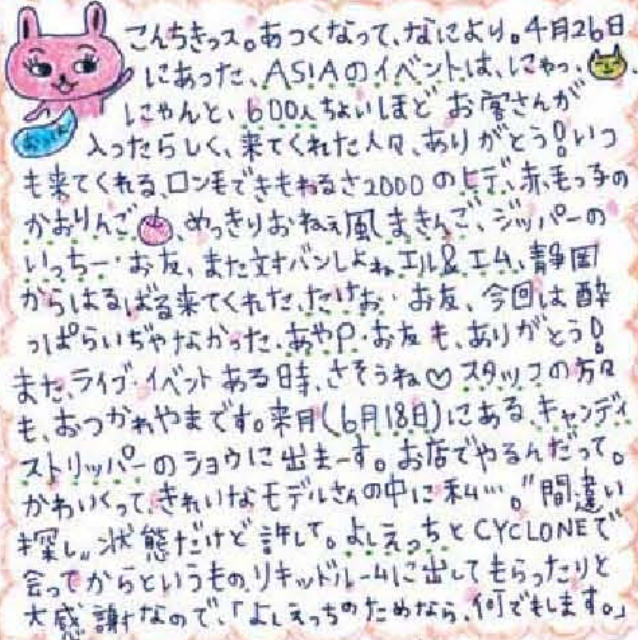 こんちきっス。あつくなって、なにより。4月26日
にあった、ASIAのイベントは、にゃっ、
にゃんと、600人ちょいほど お客さんが
入ったらしく、来てくれた人々、ありがとう!いつ
も来てくれる、ロン毛できもわるさ2000のヒデ、赤毛っ子の
かおりんご、めっきりおねえ風まきんご、ジッパーの
いっちー・お友、また文オバンしよね、エル&エム、静岡
からはるばる来てくれた、たけお・お友、今回は酔
っぱらいぢゃなかった、あやP・お友も、ありがとう!
また、ライブ・イベントある日時、さそうね♡スタッフの方々
も、おつかれやまです。来月(6月18日)にある、キャンディ
ストリッパーのショウに出まーす。お店でやるんだって。
かわいくって、きれいなモデルさんの中に私…。"間違い
探し〟状態だけど許して。よしえっちとCYCLONEで
会ってからというもの、リキッドルームに出してもらったりと
大感謝なので、「よしえっちのためなら、何でもします。」